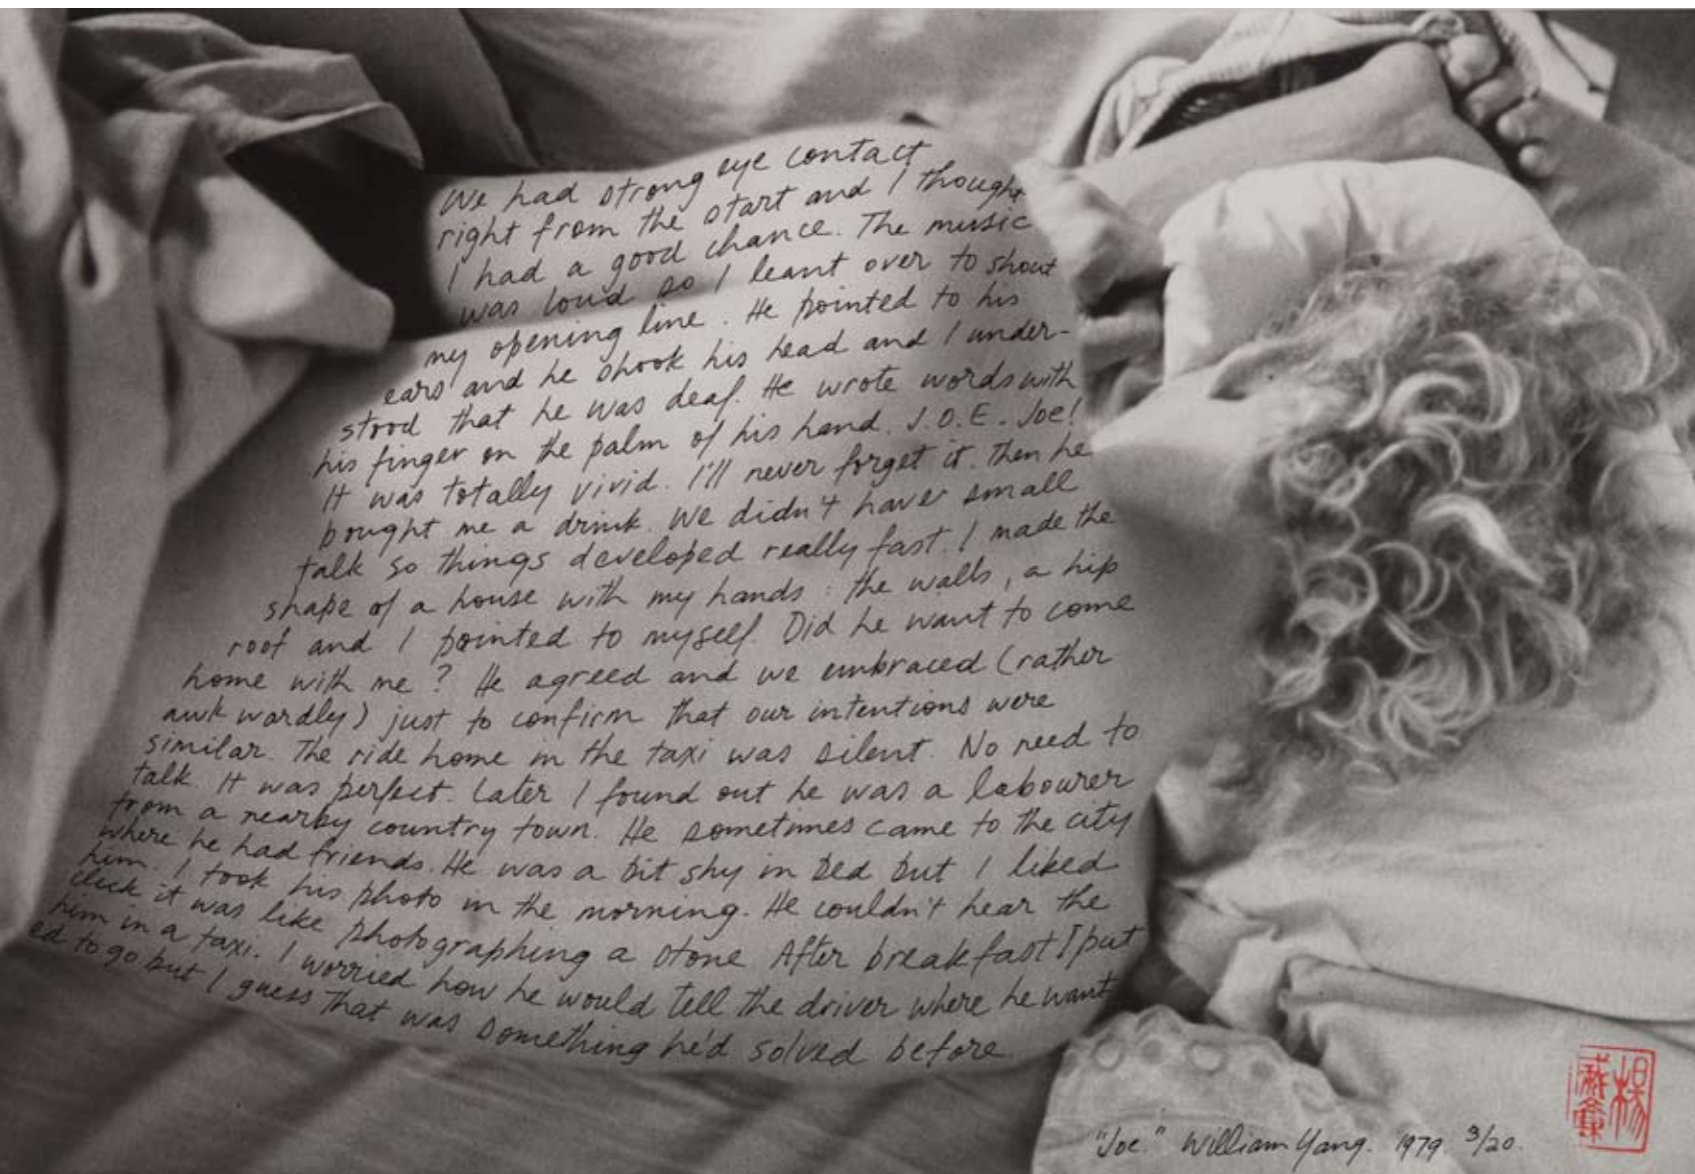 We had strong eye contact
right from the start and I thought
I had a good chance. The music
was loud so I leant over to shout
my opening line. He pointed to his
ears and he shook his head and I under-
stood that he was deaf. He wrote words with
his finger on the palm of his hand. J.O.E. Joe!
It was totally vivid. I'll never forget it. Then he
bought me a drink. We didn't have small
talk so things developed really fast. I made the
shape of a house with my hands: the walls, a hip
roof and I pointed to myself. Did he want to come
home with me? He agreed and we embraced (rather
awkwardly) just to confirm that our intentions were
similar. The ride home in the taxi was silent. No need to
talk. It was perfect. Later I found out he was a labourer
from a nearby country town. He sometimes came to the city
where he had friends. He was a bit shy in bed but I liked
him. I took his photo in the morning. He couldn't hear the
click it was like photographing a stone. After breakfast I put
him in a taxi. I worried how he would tell the driver where he want-
ed to go but I guess that was something he'd solved before
"Joe." William Yang. 1979. 3/20.
楊威廉